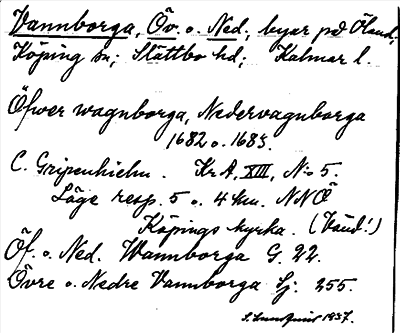 Vannborga, Öv. o. Ned., byar på Öland;
Köping sn; Slättbo hd; Kalmar l.
Öfwer wagnborga, Nedervagnborga
1682 o. 1683.
C. Gripenhielm. Kr.A. XIII, N:o 5.
Läge resp. 5 o. 4 km. NNÖ
Köpings kyrka. (Vänd!)
Öf. o. Ned. Wannborga G. 22.
Övre o. Nedre Vannborga Lj. 255.
1937.